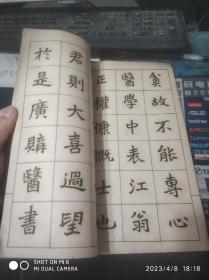 貧故不能專心
醫學中表江翁
正權慷慨士也
君則大喜過望
於是廣購醫書
SHOT ON MI 6
MI DUAL CAMERA
2023/4/8 18:18